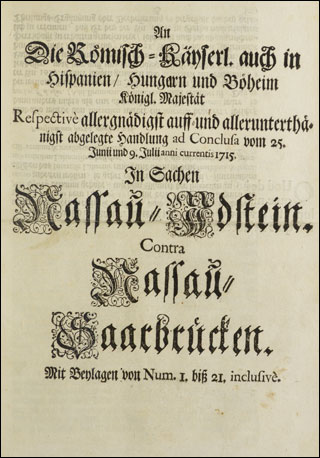 An
Die Römisch-Käyserl. auch in
Hispanien/ Hungarn und Böheim
Königl. Majestät
Respectivè allergnädigst auff- und allerunterthä-
nigst abgelegte Handlung ad Conclusa vom 25.
Junii und 9. Julii anni currentis 1715.
In Sachen
Nassau-Idstein.
Contra
Nassau-
Saarbrücken.
Mit Beylagen von Num. 1. biß 21. inclusivè.